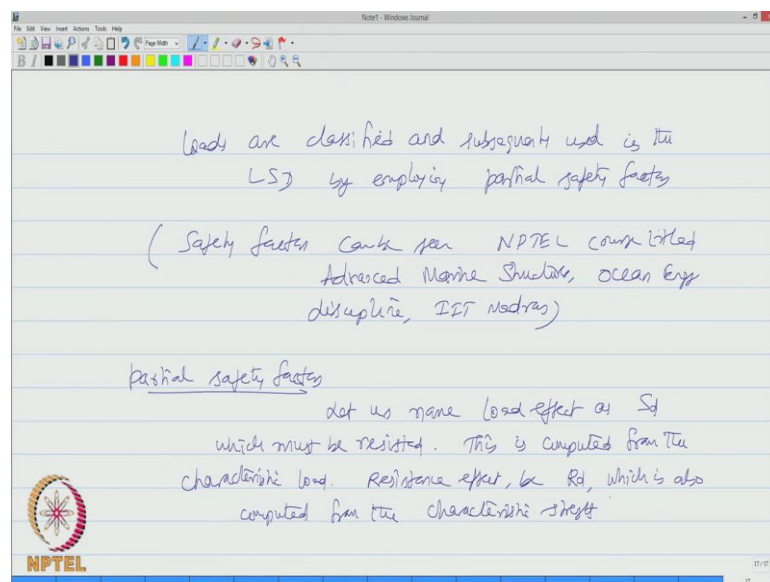 Note1 - Windows Journal
File Edit View Insert Actions Tools Help
Page Width
B I
Loads are classified and subsequently used in the
LSD by employing partial safety factors
(Safety factors can be seen NPTEL course titled
Advanced Marine Structures, ocean Engg
discipline, IIT Madras)
partial safety factors
Let us name load effect as Sd
which must be resisted. This is computed from the
characteristic load. Resistance effect, be Rd, which is also
computed from the characteristic strength
NPTEL
17/17